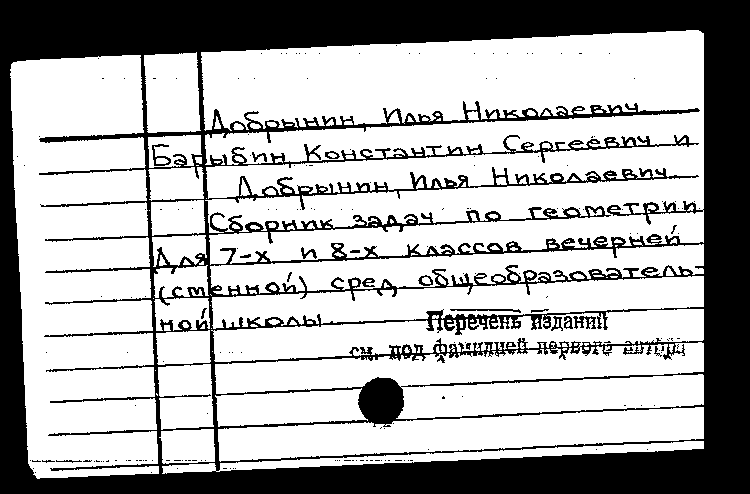 Добрынин, Илья Николаевич.
Барыбин, Константин Сергеевич и
Добрынин, Илья Николаевич.
Сборник задач по геометрии
Для 7-х и 8-х классов вечерней
(сменной) сред. общеобразователь-
ной школы.
Перечень изданий
см. под фамилией первого автора